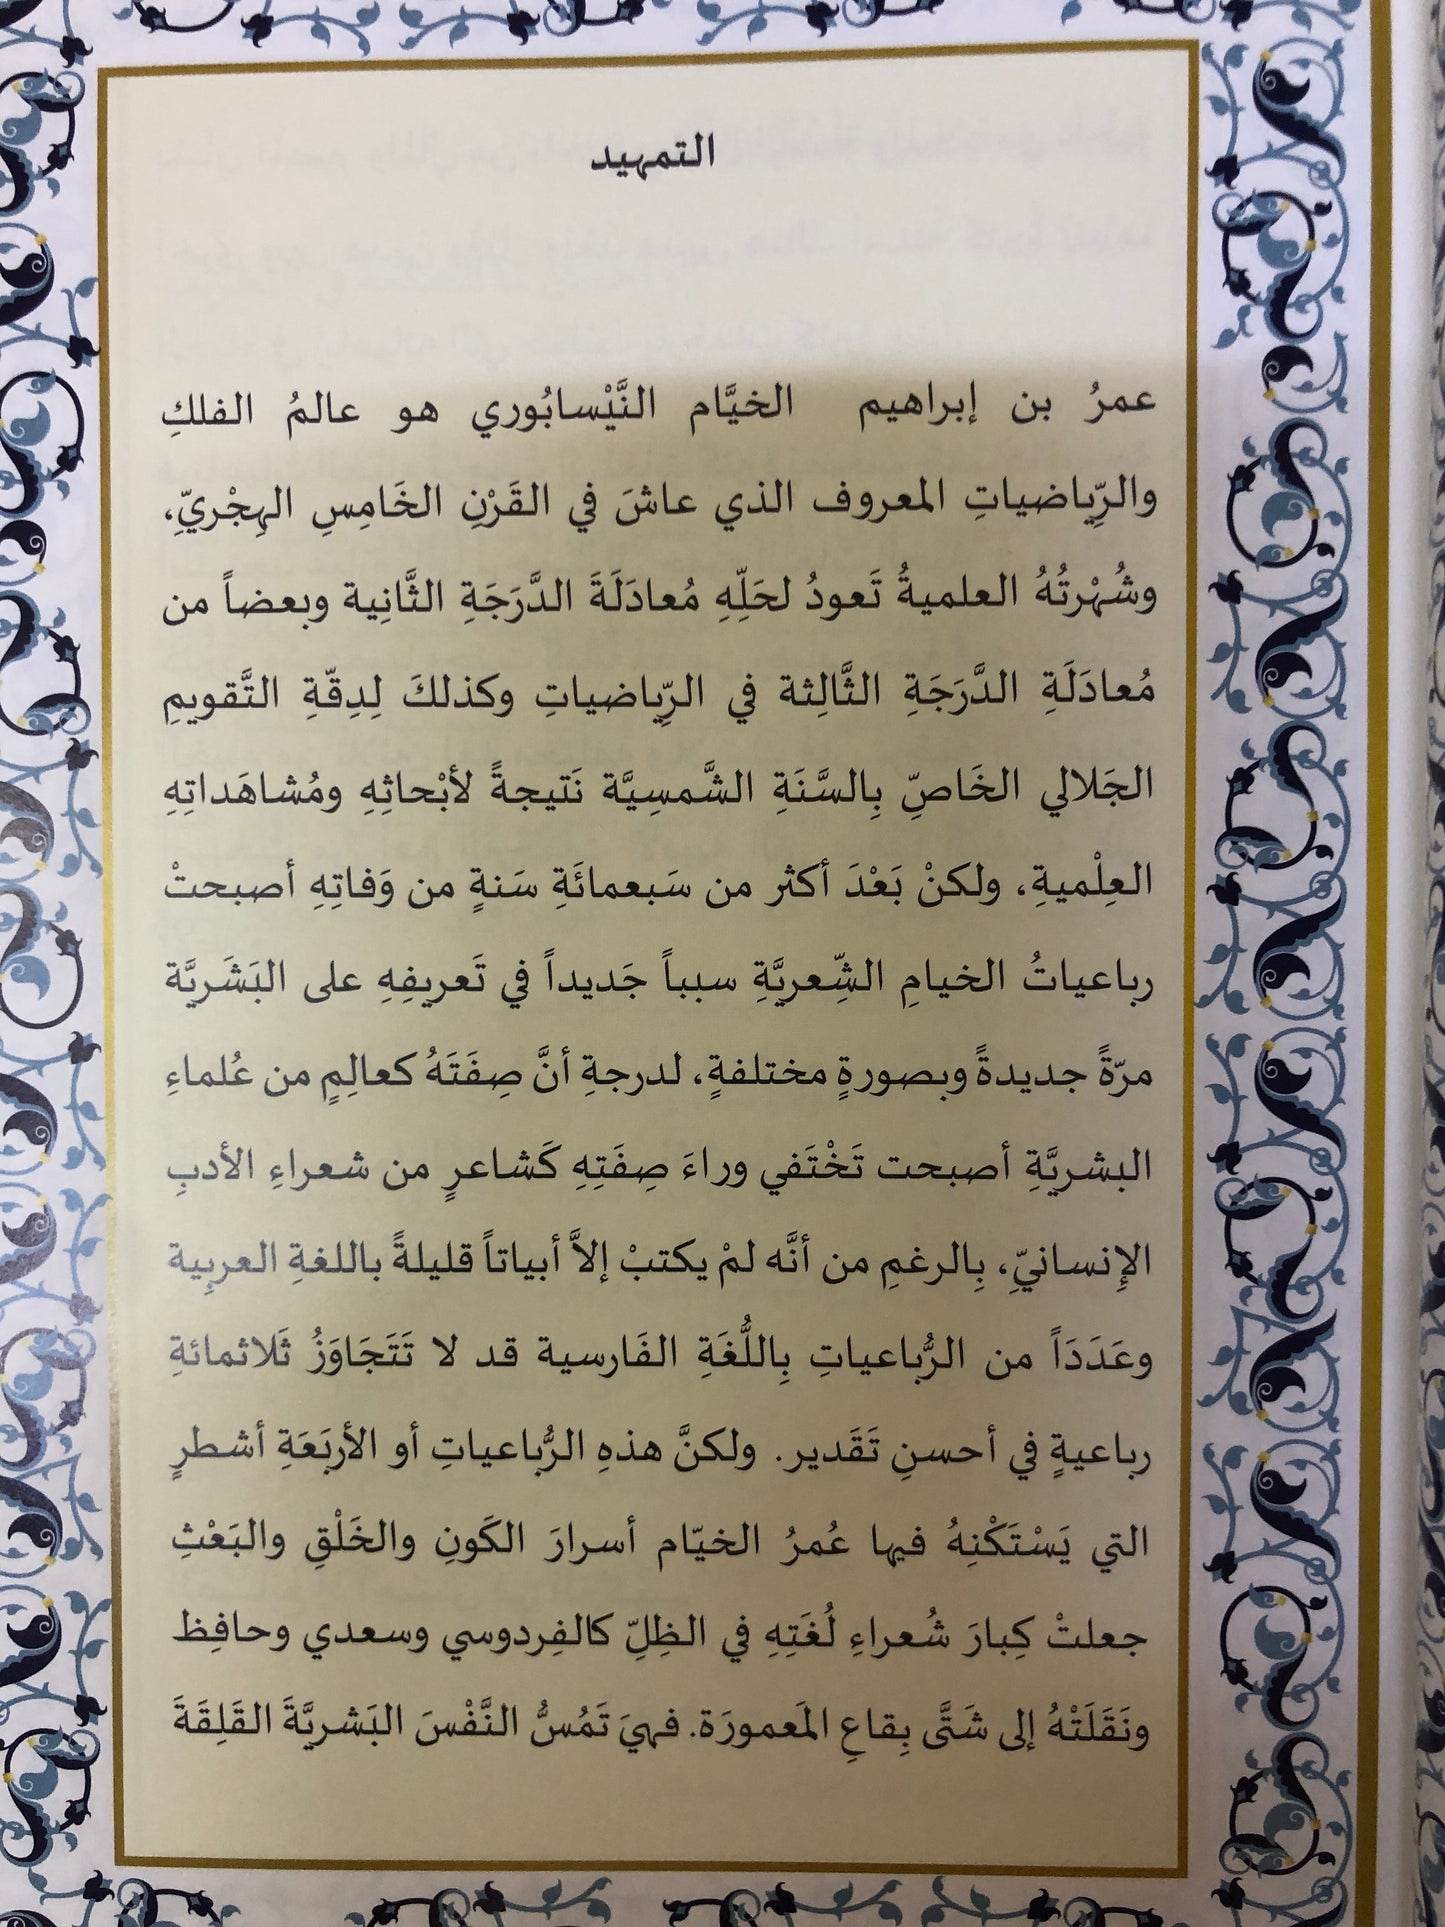 التمهيد
عمرُ بن إبراهيم الخيَّام النَّيْسابُوري هو عالمُ الفلكِ
والرِّياضياتِ المعروف الذي عاشَ في القَرْنِ الخَامِسِ الهِجْريِّ،
وشُهْرتُهُ العلميةُ تَعودُ لحَلِّهِ مُعادَلَةَ الدَّرَجَةِ الثَّانِية وبعضاً من
مُعادَلَةِ الدَّرَجَةِ الثَّالِثة في الرِّياضياتِ وكذلكَ لِدِقّةِ التَّقويمِ
الجَلالي الخَاصِّ بِالسَّنَةِ الشَّمسِيَّة نَتيجةً لأبْحاثِهِ ومُشاهَداتِهِ
العِلْميةِ، ولكنْ بَعْدَ أكثر من سَبعمائَةِ سَنةٍ من وَفاتِهِ أصبحتْ
رباعياتُ الخيامِ الشِّعريَّةِ سبباً جَديداً في تَعريفِهِ على البَشَريَّة
مرّةً جديدةً وبصورةٍ مختلفةٍ، لدرجةِ أنَّ صِفَتَهُ كعالِمٍ من عُلماءِ
البشريَّةِ أصبحت تَخْتَفي وراءَ صِفَتِهِ كَشاعرٍ من شعراءِ الأدبِ
الإنسانيِّ، بِالرغمِ من أنَّه لمْ يكتبْ إلاَّ أبياتاً قليلةً باللغةِ العربِية
وعَدَدَاً من الرُّباعياتِ بِاللُّغَةِ الفَارسية قد لا تَتَجَاوَزُ ثَلاثمائةِ
رباعيةٍ في أحسنِ تَقَدير. ولكنَّ هذهِ الرُّباعياتِ أو الأربَعَةِ أشطرٍ
التي يَسْتَكْنِهُ فيها عُمرُ الخيّام أسرارَ الكَونِ والخَلْقِ والبَعْثِ
جعلتْ كِبارَ شُعراءِ لُغَتِهِ في الظِلِّ كالفِردوسي وسعدي وحافِظ
ونَقَلَتْهُ إلى شَتَّى بِقاعِ المَعمورَة. فهيَ تَمُسُّ النَّفْسَ البَشريَّةَ القَلِقَةَ